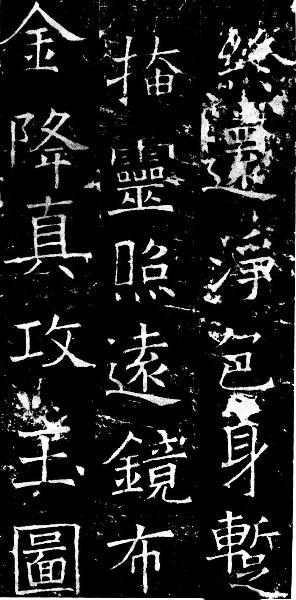 終還淨色身蹔
掩靈照遠鏡布
金降真攻玉圖